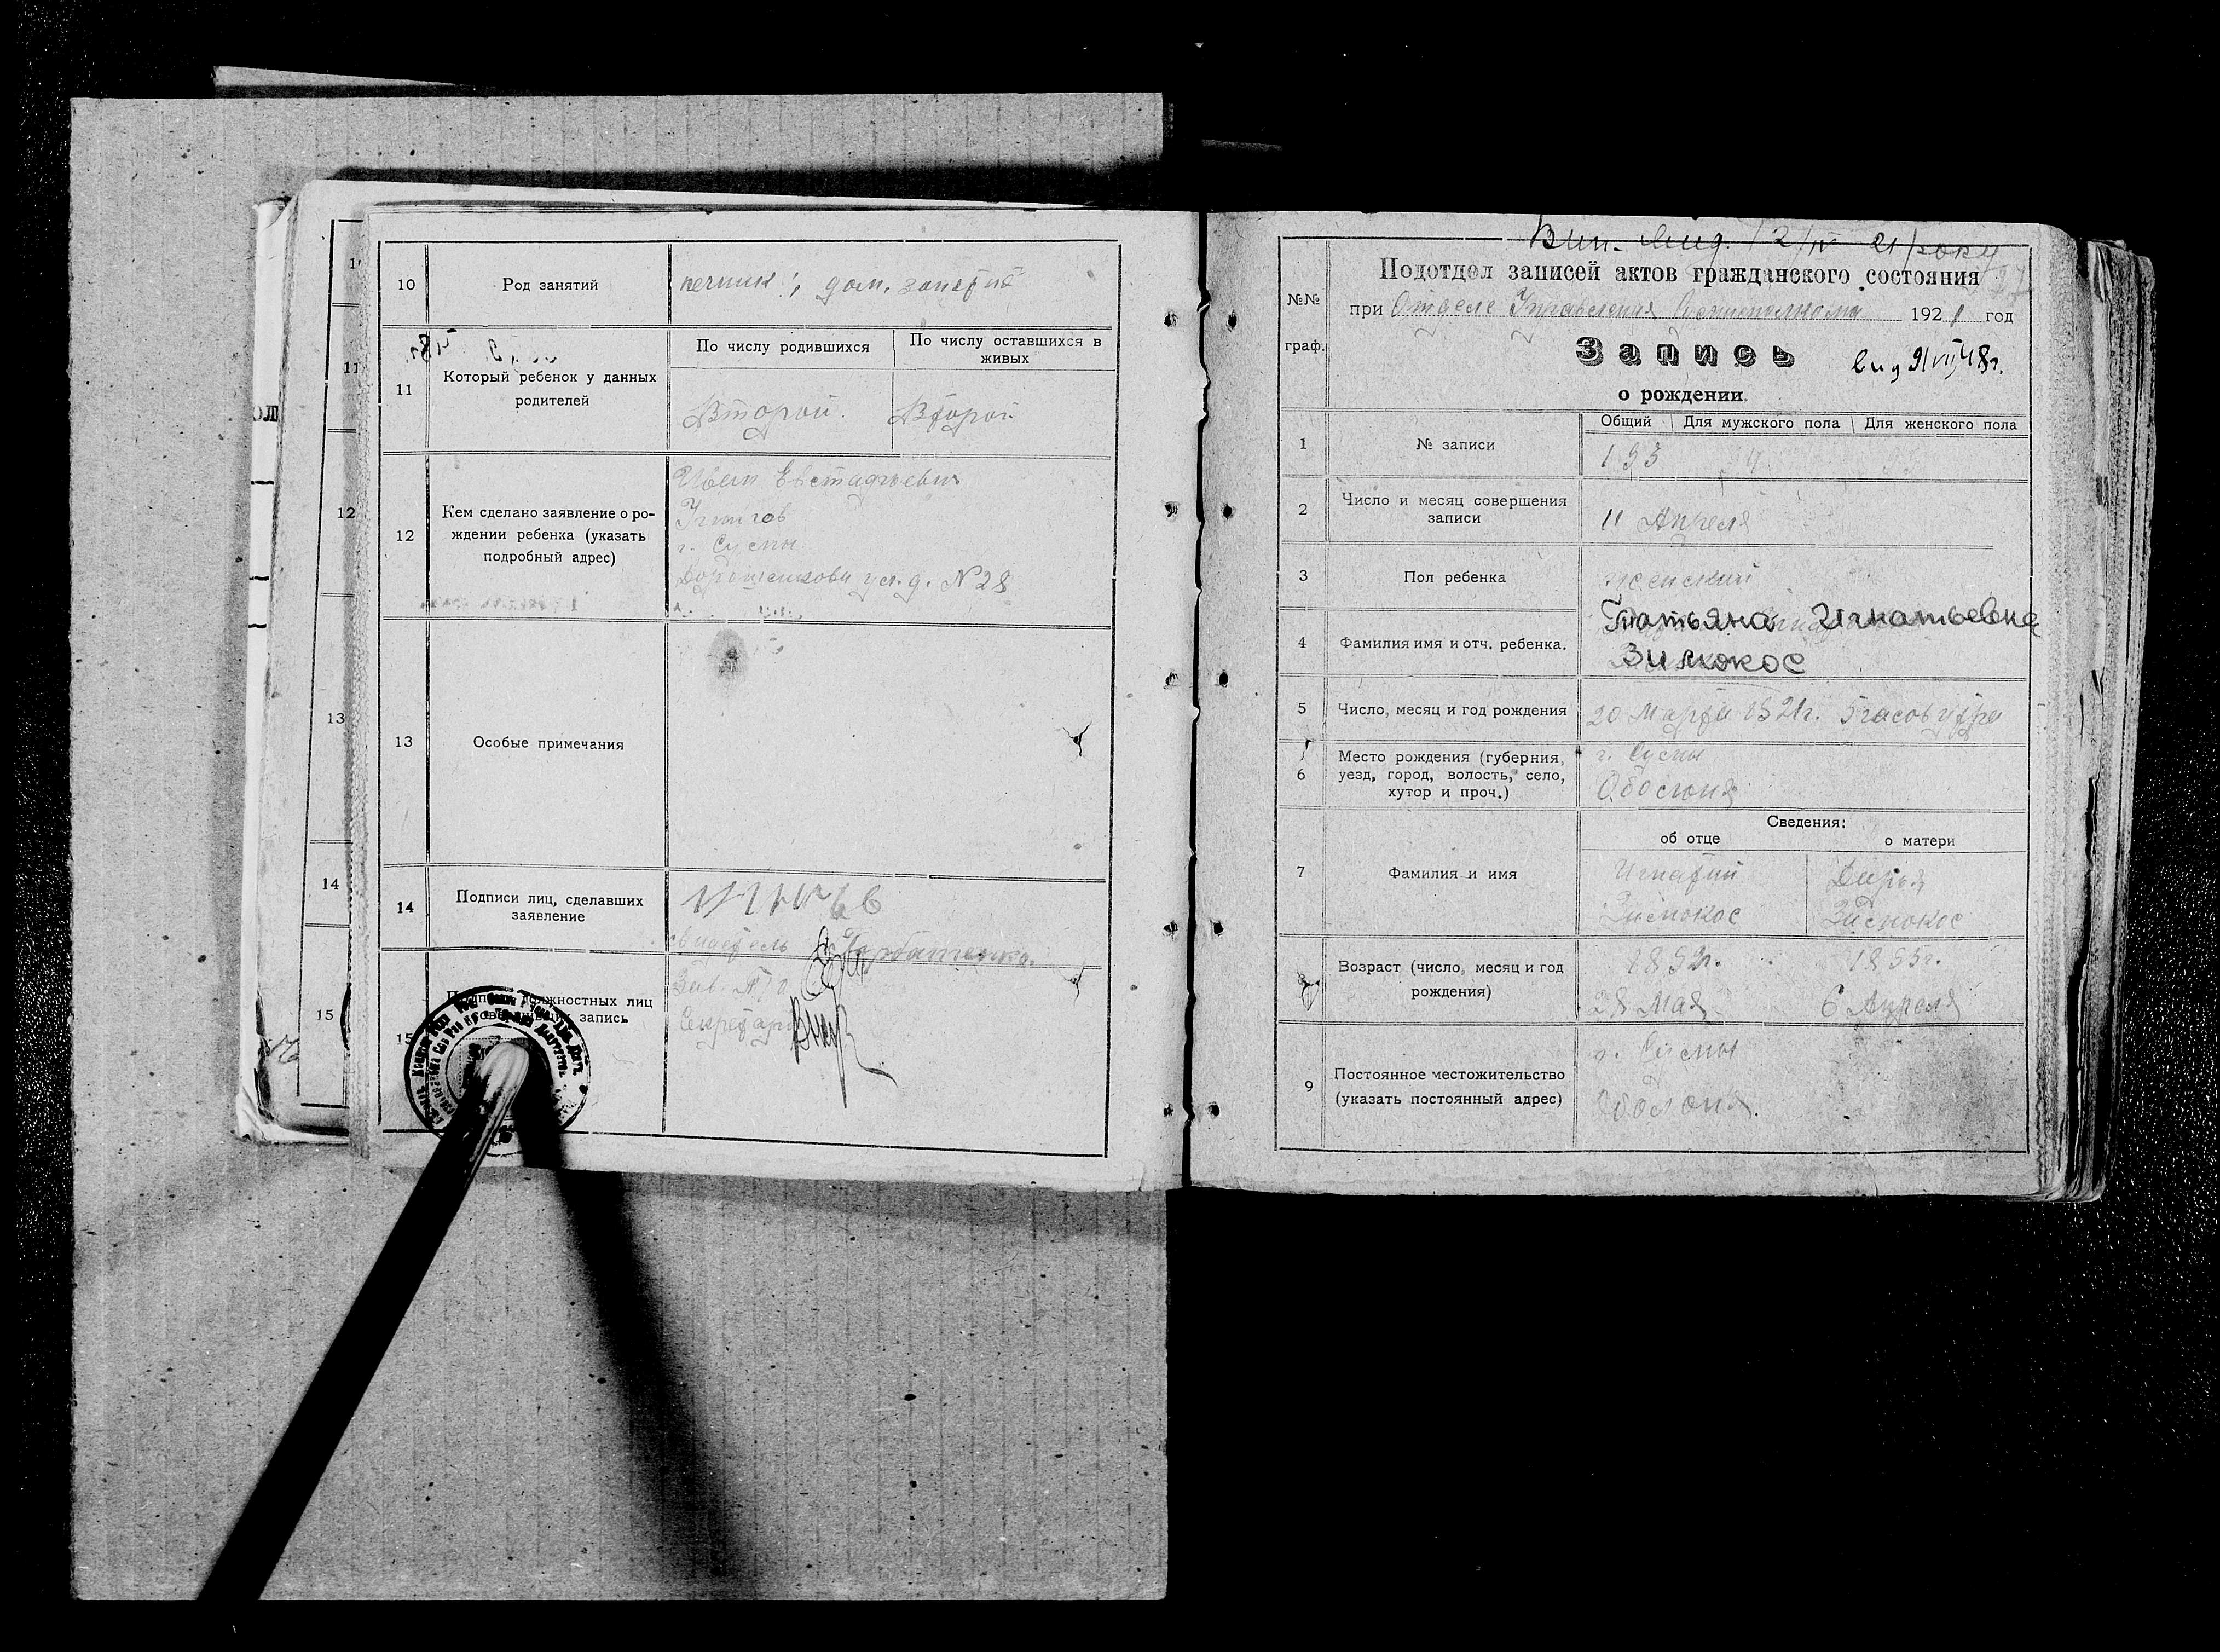 10
Род занятий
печник; дом. занятия
11
Который ребенок у данных
родителей
По числу родившихся
По числу оставшихся в
живых
Второй.
Второй
12
Кем сделано заявление о ро-
ждении ребенка (указать
подробный адрес)
Иван Евстафьевич
г. Сумы
ул. д. N 28
13
Особые примечания
14
Подписи лиц, сделавших
заявление
свидетель Горбатенко.
15
Подписи должностных лиц
совершивших запись
Зав. П/о
Секретарь
1
12
13
14
15
Вип. вид. 12/IV 21 року
Подотдел записей актов гражданского состояния
при Отделе Управления 1921 год
№№
граф.
Запись
вид 9/VII 48 г.
о рождении.
1
№ записи
Общий
Для мужского пола
Для женского пола
193
2
Число и месяц совершения
записи
11 Апреля
3
Пол ребенка
женский
4
Фамилия имя и отч. ребенка.
Татьяна Игнатьевна
Зимокос
5
Число, месяц и год рождения
20 Марта 1921г. 5 часов утра
6
Место рождения (губерния,
уезд, город, волость, село,
хутор и проч.)
г. Сумы
Оболоня
Сведения:
об отце
о матери
7
Фамилия и имя
Игнатий
Зимокос
Дарья
Зимокос
Возраст (число, месяц и год
рождения)
28 Мая
6 Апреля
9
Постоянное местожительство
(указать постоянный адрес)
г. Сумы
Оболоня.